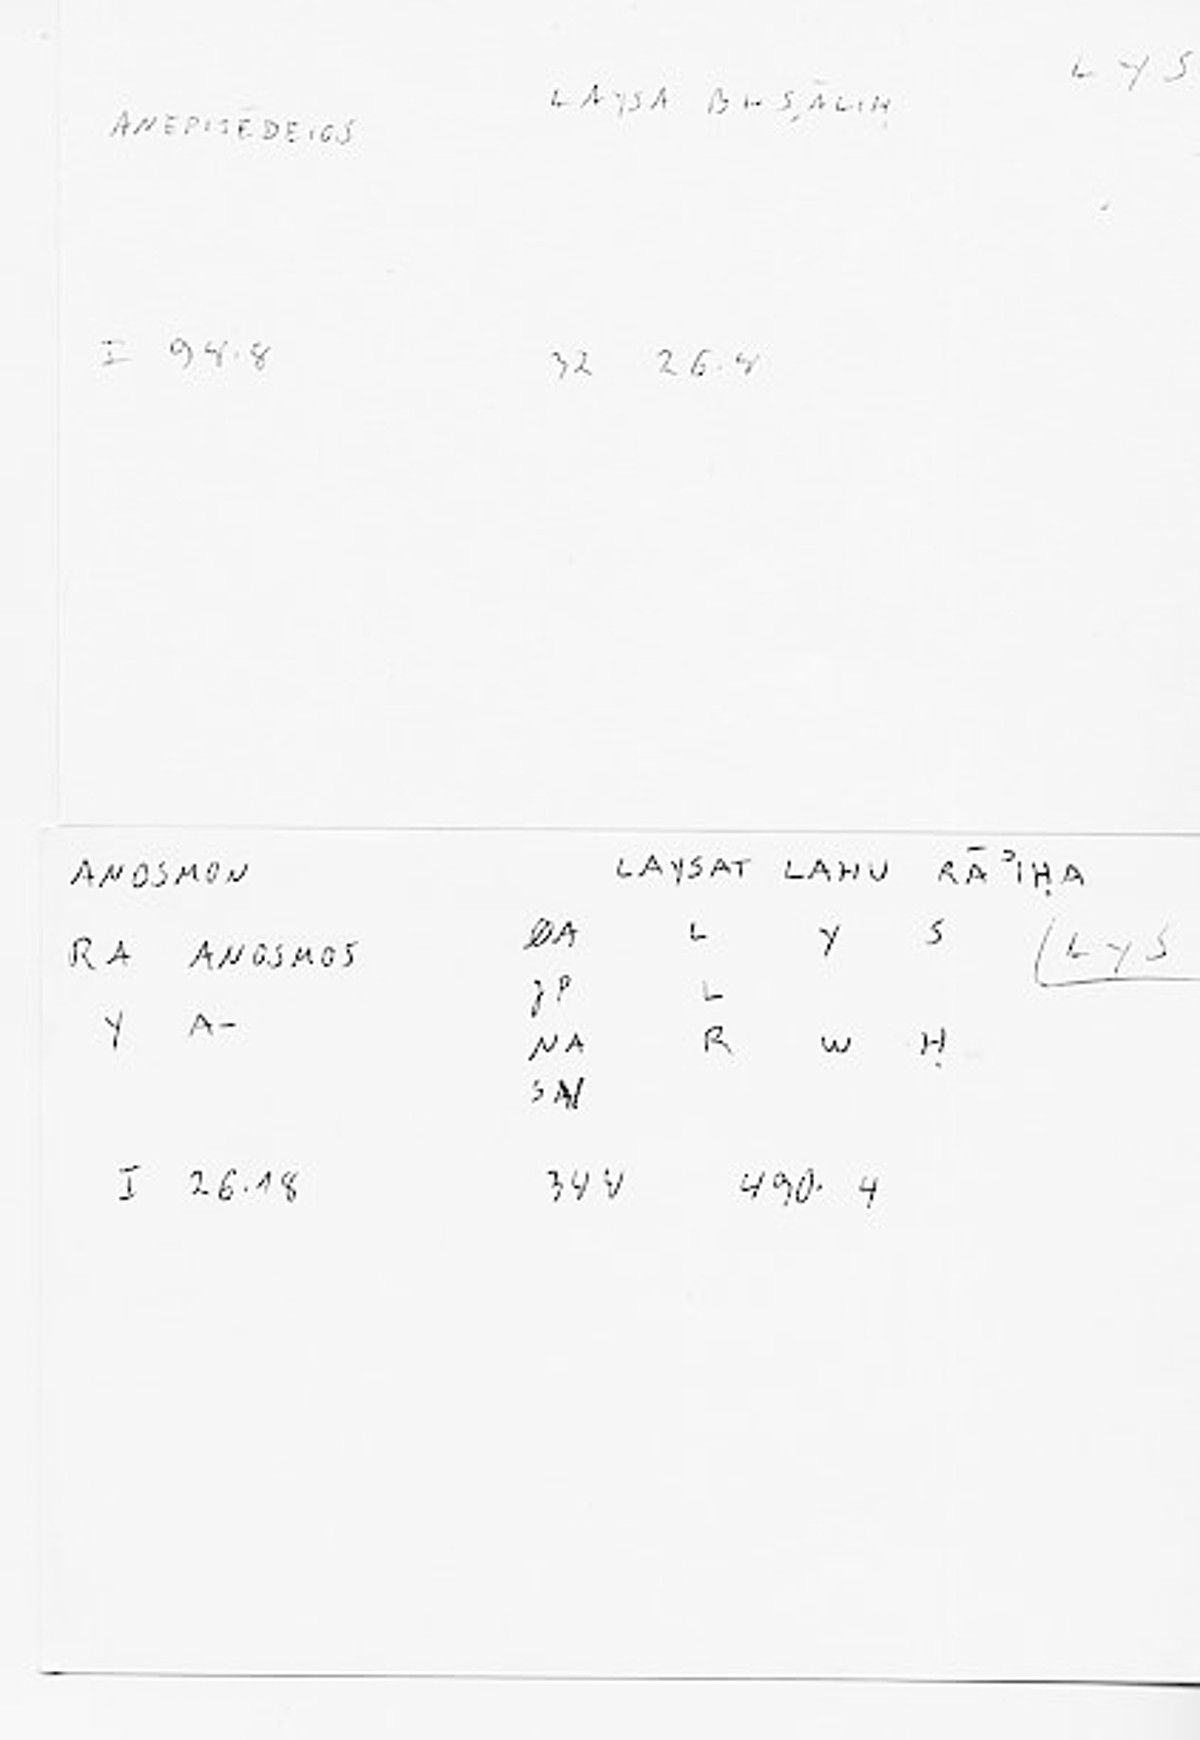 LYS
LAYSA BI-ṢĀLIḤ
ANEPITĒDEIOS
I 94.8 32 26.4
ANOSMON LAYSAT LAHU RĀʾIḤA
RA ANOSMOS ØA L Y S (LYS
JP L
Y A- NA R W Ḥ
SA
I 26.18 344 490. 4